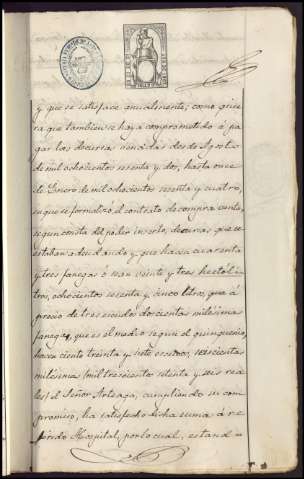 y que se satisface anualmente; como quie-
ra que tambien se haya comprometido á pa-
gar los decursas venidas desde Agosto
de mil ochocientos sesenta y dos, hasta once
de Enero de mil ochocientos sesenta y cuatro,
en que se formalizó el contrato de compra-venta,
segun consta del poder inserto, decursas que se
estaban adeudando y que hacen cuarenta
y tres fanegas ó sean veinte y tres hectóli-
tros, ochocientos sesenta y cinco litros, que á
precio de tres escudos doscientas milésimas
fanega, que es el medio segun el quinquenio,
hacen ciento treinta y siete escudos, seiscientas
milésimas (mil trescientos setenta y seis rea-
les) el Señor Arteaga, cumpliendo su com-
promiso, ha satisfecho dicha suma á re-
ferido Hospital, por lo cual, estand-